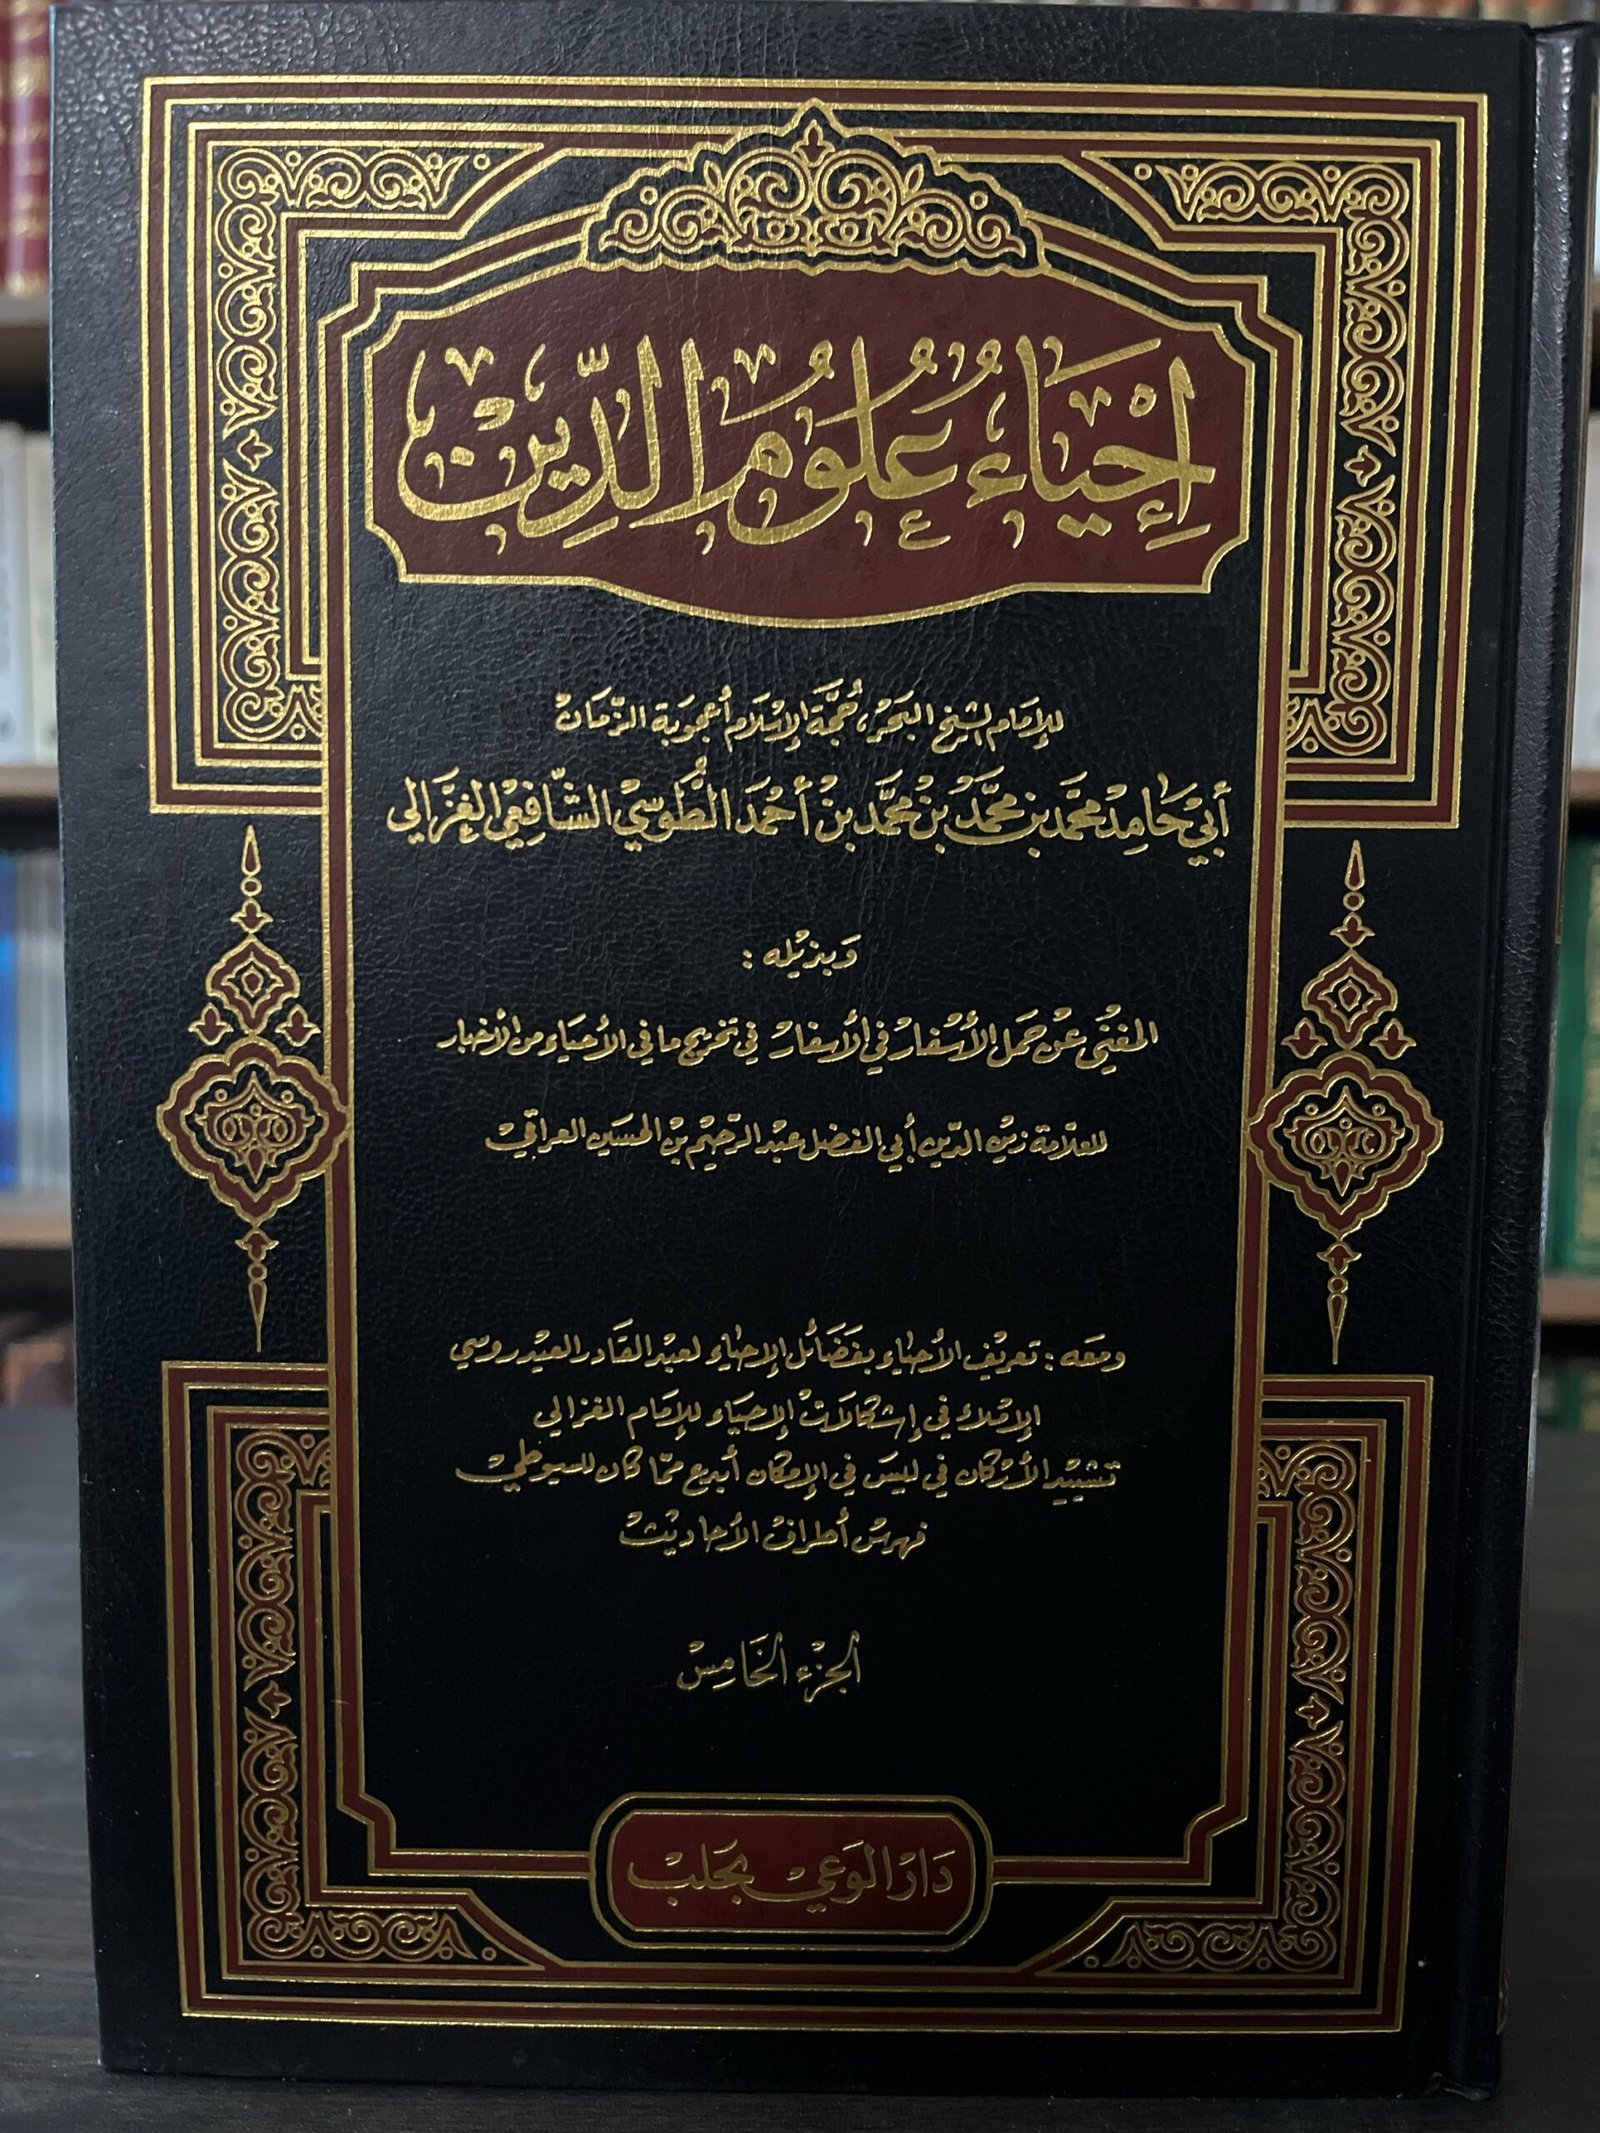 إِحْيَاءُ عُلُومُ الدِّيْن
للإمَام الشيخ البَحَر، حُجَّة الإسْلَام أعْجُوبَة الزّمَانْ
أبيْ حَامِدْ محَّمَد بن محَمَّدْ بْنُ محَمَّد بنْ أحْمَدَ الطُّوسِيْ الشَّافِعْي الغِزَالي
وَبذيْله :
المغنْي عَنْ حمل الأسْفارْ في الأسفارْ في تخريج ما في الأحيَاء من الأخبار
للعلّامة زين الدّين أبي الفضل عبْد الرّحيْم بن الحسَين العراقيْ
ومَعَه : تعريْف الأحيَاء بفَضَائل الإحيَاء لعبْد القَادر العيْدروسي
الإمْلاء في إشكالاتْ الإحيَاء للإمَام الغزالي
تشييْد الأرْكان في ليسَ في الإمكان أبدع ممّا كان للسيوطيْ
فهرسْ أطرافْ الأحاديْث
الجزْء الخَامِسْ
دَار الوَعيْ بحَلبْ